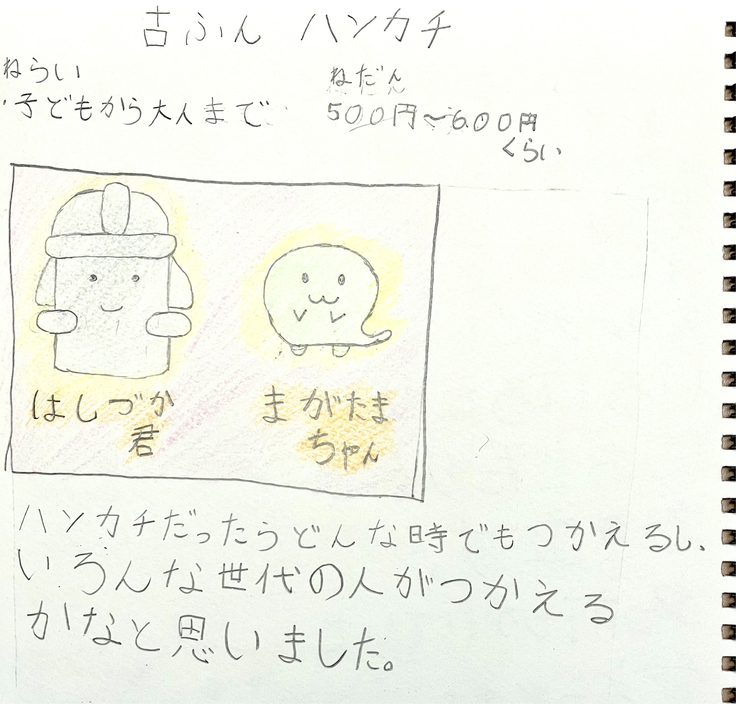 古ふん ハンカチ
ねらい
・子どもから大人まで
ねだん
500円〜600円
くらい
はしづか
君
まがたま
ちゃん
ハンカチだったらどんな時でもつかえるし、
いろんな世代の人がつかえる
かなと思いました。